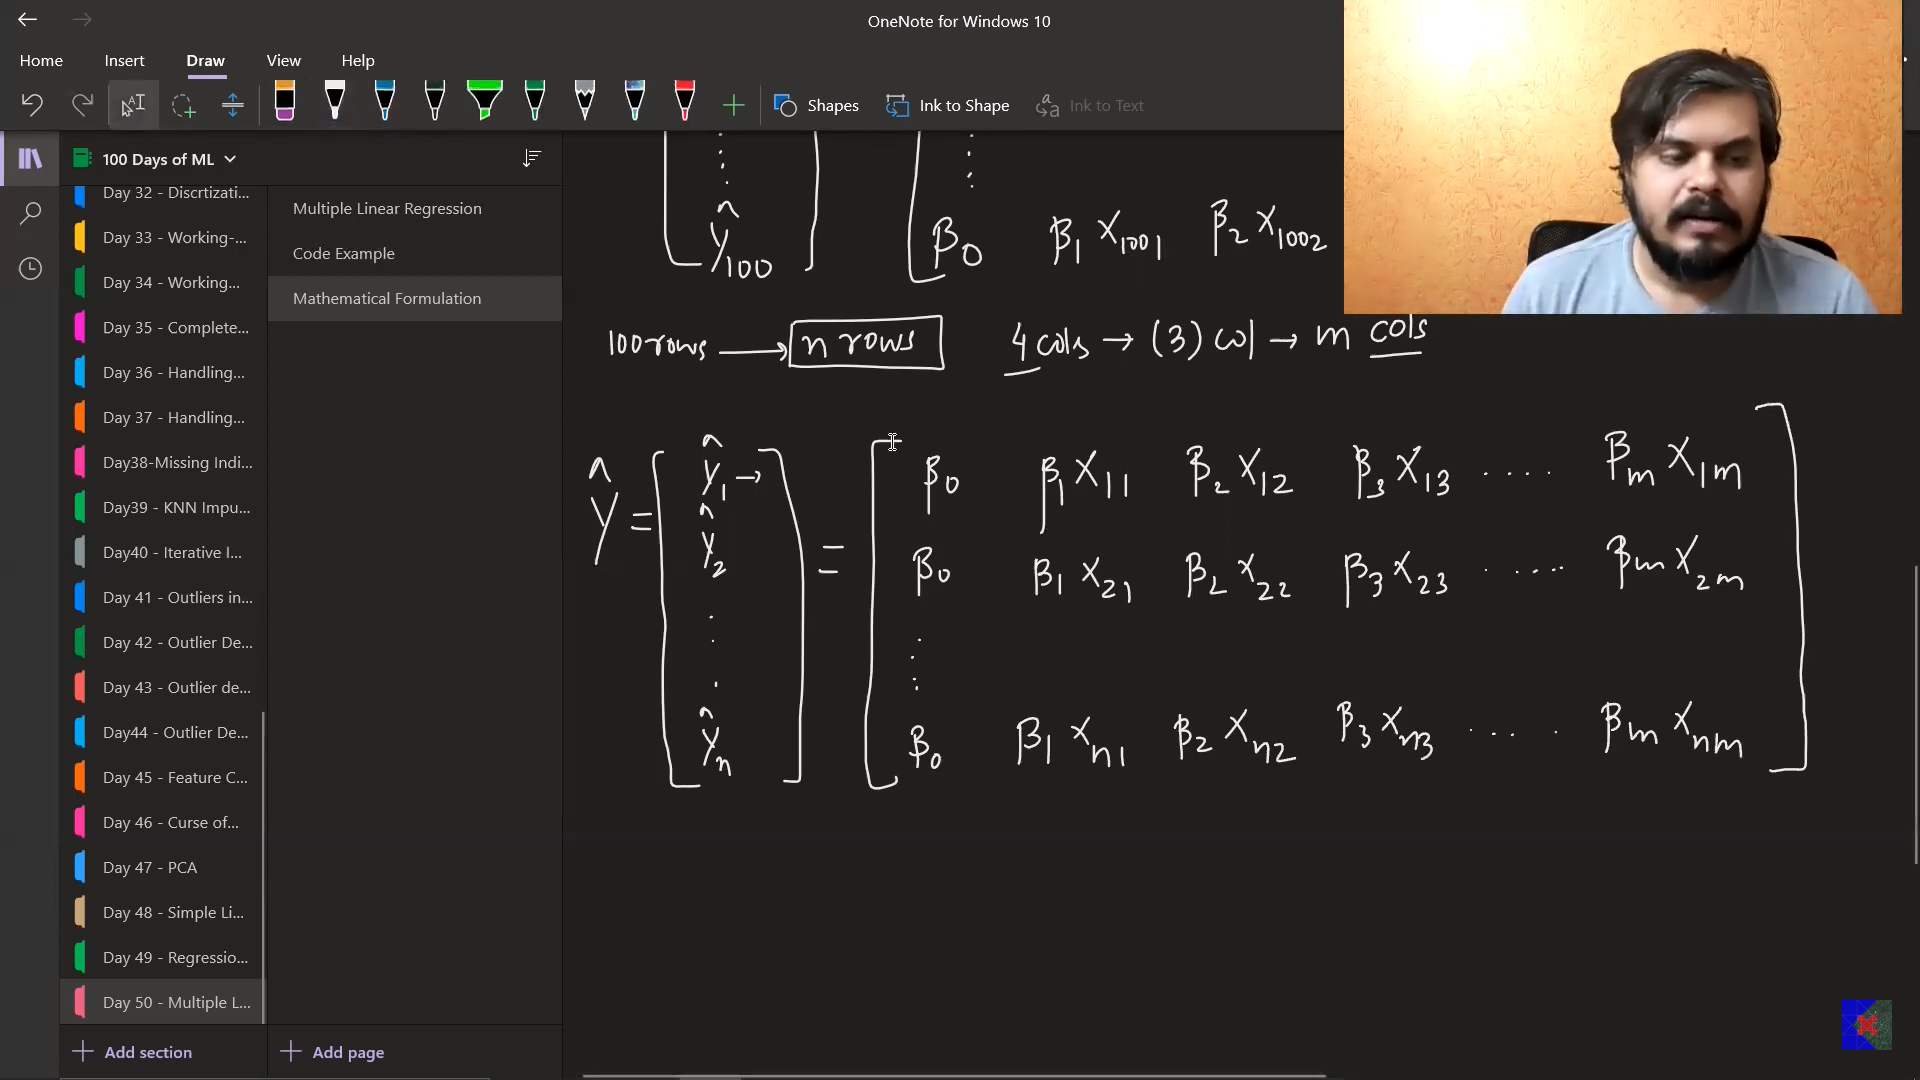 OneNote for Windows 10
Home Insert Draw View Help
Shapes Ink to Shape Ink to Text
100 Days of ML
Day 32 - Discrtizati...
Day 33 - Working-...
Day 34 - Working...
Day 35 - Complete...
Day 36 - Handling...
Day 37 - Handling...
Day38-Missing Indi...
Day39 - KNN Impu...
Day40 - Iterative I...
Day 41 - Outliers in...
Day 42 - Outlier De...
Day 43 - Outlier de...
Day44 - Outlier De...
Day 45 - Feature C...
Day 46 - Curse of...
Day 47 - PCA
Day 48 - Simple Li...
Day 49 - Regressio...
Day 50 - Multiple L...
Add section
Multiple Linear Regression
Code Example
Mathematical Formulation
Add page
ŷ₁₀₀ β₀ β₁ X₁₀₀₁ β₂ X₁₀₀₂
100 rows → n rows 4 cols → (3) col → m cols
Ŷ = [ ŷ₁ → = [ β₀ β₁ X₁₁ β₂ X₁₂ β₃ X₁₃ .... βₘ X₁ₘ ]
ŷ₂ β₀ β₁ X₂₁ β₂ X₂₂ β₃ X₂₃ ..... βₘ X₂ₘ
⋮ ⋮
ŷₙ β₀ β₁ Xₙ₁ β₂ Xₙ₂ β₃ Xₙ₃ .... βₘ Xₙₘ